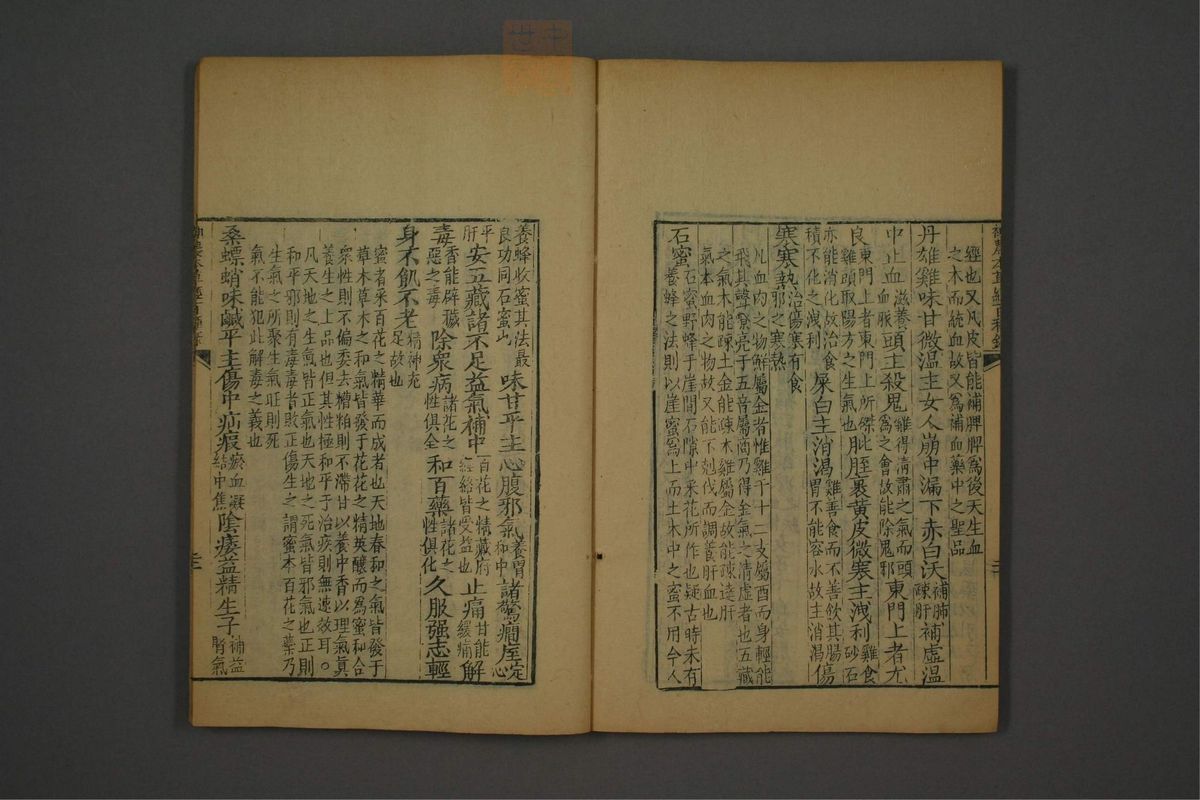 經也又凡皮皆能補脾脾為後天生血
之本而統血故又為補血藥中之聖品
丹雄雞味甘微溫主女人崩中漏下赤白沃補肺疎肝補虛溫
中止血滋養血脈頭主殺鬼雞得清肅之氣而頭為之會故能除鬼邪東門上者尤
良東門上者東門上所傑比雞頭取陽方之生氣也肶胵裹黃皮微寒主洩利雞食砂石
亦能消化故治食積不化之洩利屎白主消渴雞善食而不善飲其腸胃不能容水故主消渴傷
寒寒熱治傷寒有食邪之寒熱
凡血肉之物鮮屬金者惟雞于十二支屬酉而身輕能
飛其聲亮于五音屬商乃得金氣之清虛者也五藏
之氣木能疎土金能疎木雞屬金故能疎達肝
氣本血肉之物故又能不剋伐而調養肝血也
石蜜石蜜野蜂于崖間石隙中采花所作也疑古時未有
養蜂之法則以崖蜜為上而土木中之蜜不用今人
養蜂收蜜其法最良功同石蜜也味甘平主心腹邪氣養胃和中諸驚癇痓定心
平肝安五藏諸不足益氣補中百花之精藏府經絡皆受益也止痛甘能緩痛解
毒香能辟穢惡之毒除眾病諸花之性俱全和百藥諸花之性俱化久服强志輕
身不飢不老精神充足故也
蜜者采百花之精華而成者也天地春和之氣皆發于
草木草木之和氣皆發于花花之精英釀而為蜜和合
眾性則不偏委去糟粕則不滯甘以養中香以理氣真
養生之上品也但其性極和平于治疾則無速效耳○
凡天地之生氣皆正氣也天地之死氣皆邪氣也正則
和平邪則有毒毒者敗正傷生之謂蜜本百花之蕊乃
生氣之所聚生氣旺則死
氣不能犯此解毒之義也
桑螵蛸味鹹平主傷中疝瘕瘀血凝結中焦陰痿益精生子補益腎氣